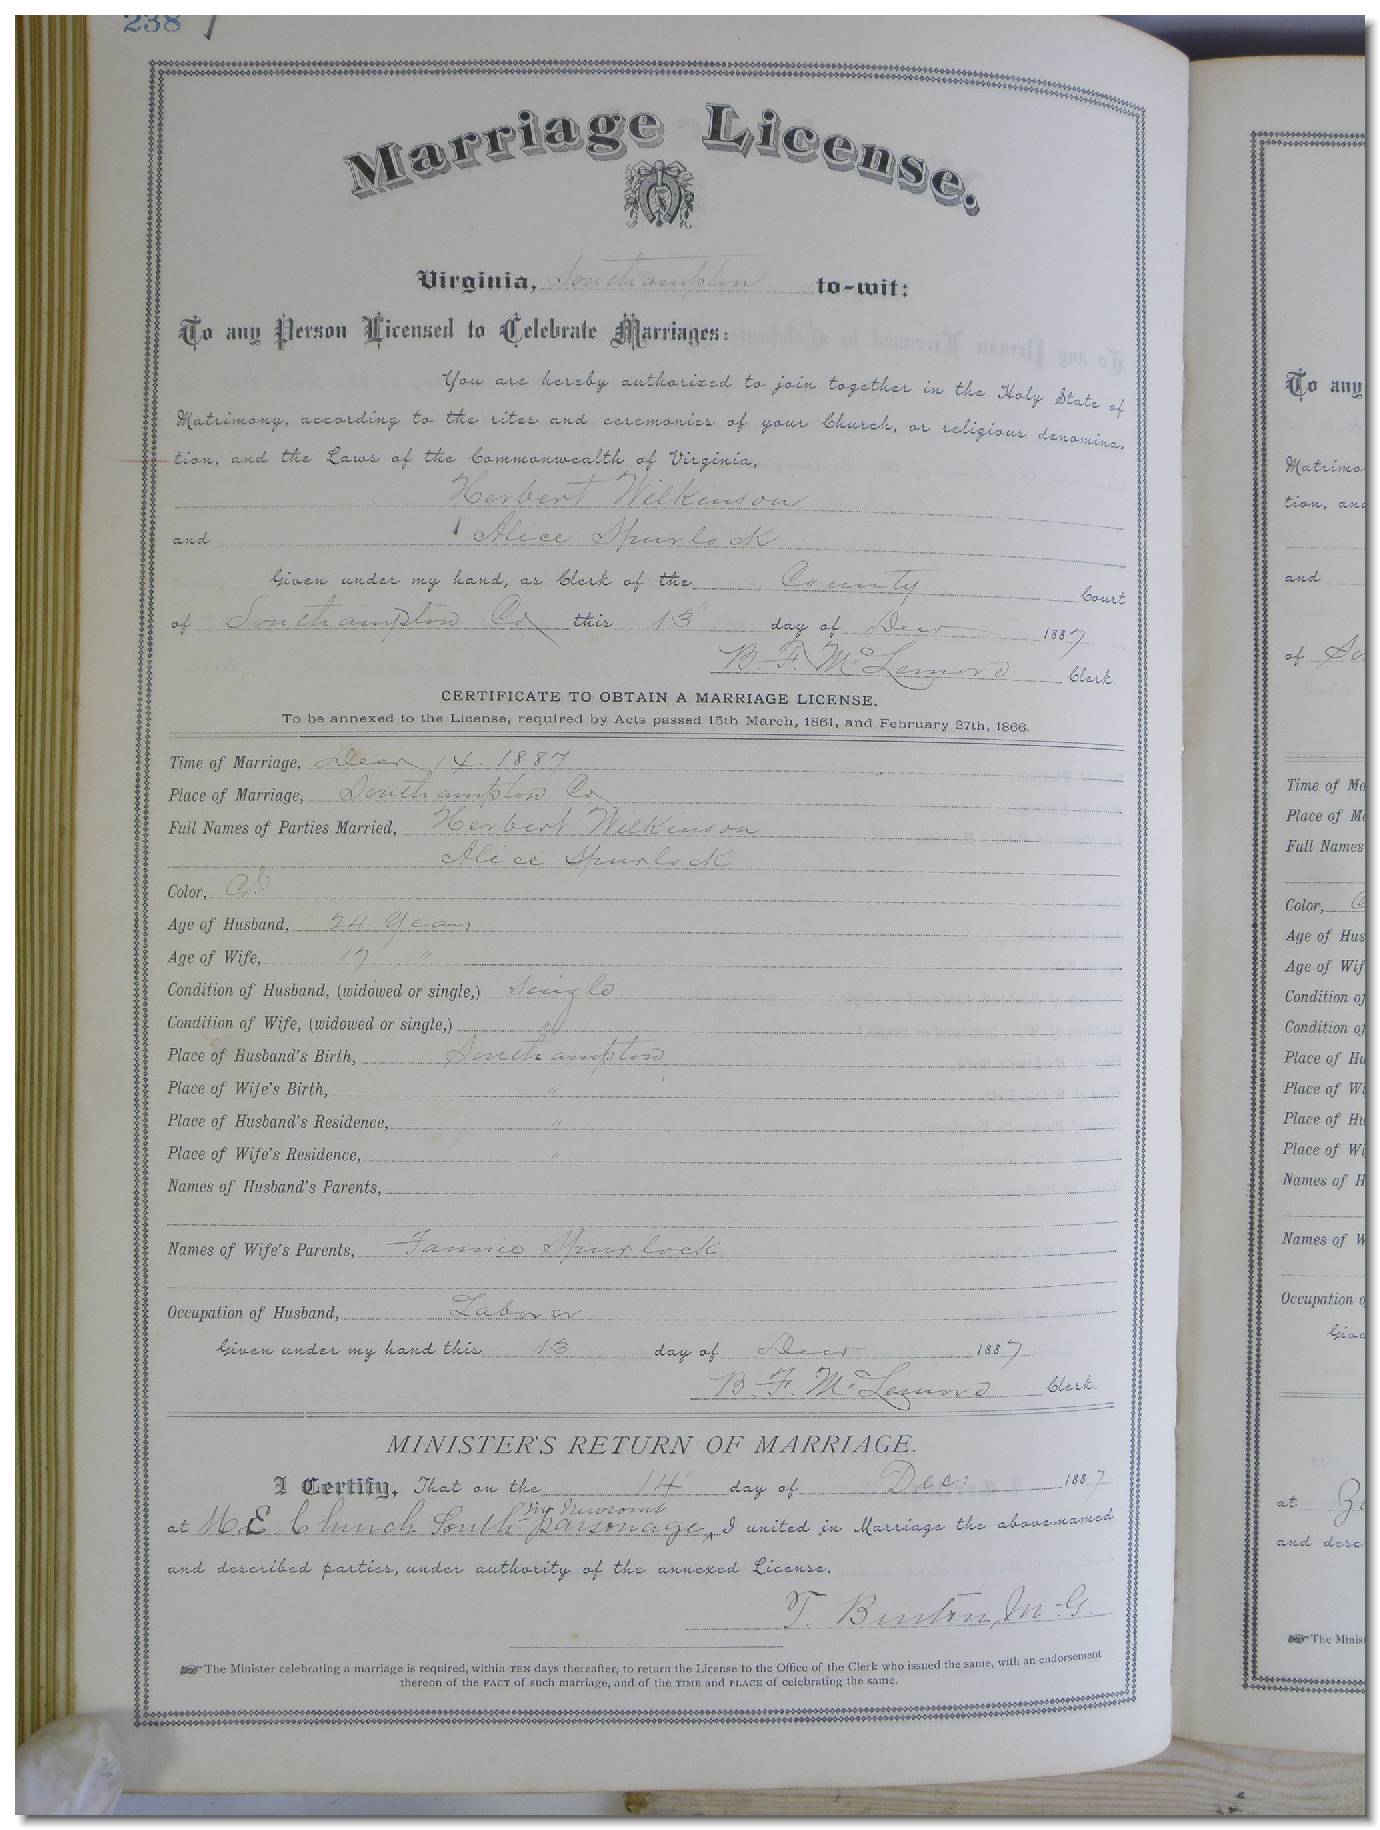 238
Marriage License.
Virginia, Southampton to-wit:
To any Person Licensed to Celebrate Marriages:
You are hereby authorized to join together in the Holy State of
Matrimony, according to the rites and ceremonies of your Church, or religious denomina-
tion, and the Laws of the Commonwealth of Virginia,
Herbert Wilkinson
and Alice Spurlock
Given under my hand, as Clerk of the County Court
of Southampton Co this 13" day of Decr 1887
B. F. McLemore Clerk.
CERTIFICATE TO OBTAIN A MARRIAGE LICENSE.
To be annexed to the License, required by Acts passed 15th March, 1861, and February 27th, 1866.
Time of Marriage, Decr 14. 1887
Place of Marriage, Southampton Co
Full Names of Parties Married, Herbert Wilkinson
Alice Spurlock
Color, Col
Age of Husband, 24 Years
Age of Wife, 17 "
Condition of Husband, (widowed or single,) Single
Condition of Wife, (widowed or single,) "
Place of Husband's Birth, Southampton
Place of Wife's Birth, "
Place of Husband's Residence, "
Place of Wife's Residence, "
Names of Husband's Parents,
Names of Wife's Parents, Fannie Spurlock
Occupation of Husband, Laborer
Given under my hand this 13 day of Decr 1887
B. F. McLemore Clerk.
MINISTER'S RETURN OF MARRIAGE.
I Certify, That on the 14" day of Dec: 1887
Newsoms
at M E Church South parsonage, I united in Marriage the above-named
and described parties, under authority of the annexed License.
T. Binton, M. G.
The Minister celebrating a marriage is required, within TEN days thereafter, to return the License to the Office of the Clerk who issued the same, with an endorsement
thereon of the FACT of such marriage, and of the TIME and PLACE of celebrating the same.
To any
Matrimo
tion, and
and
of
Time of Ma
Place of Ma
Full Names
Color,
Age of Hus
Age of Wif
Condition of
Condition of
Place of Hu
Place of Wi
Place of Hu
Place of Wi
Names of H
Names of W
Occupation o
Give
at
and desc
The Minis